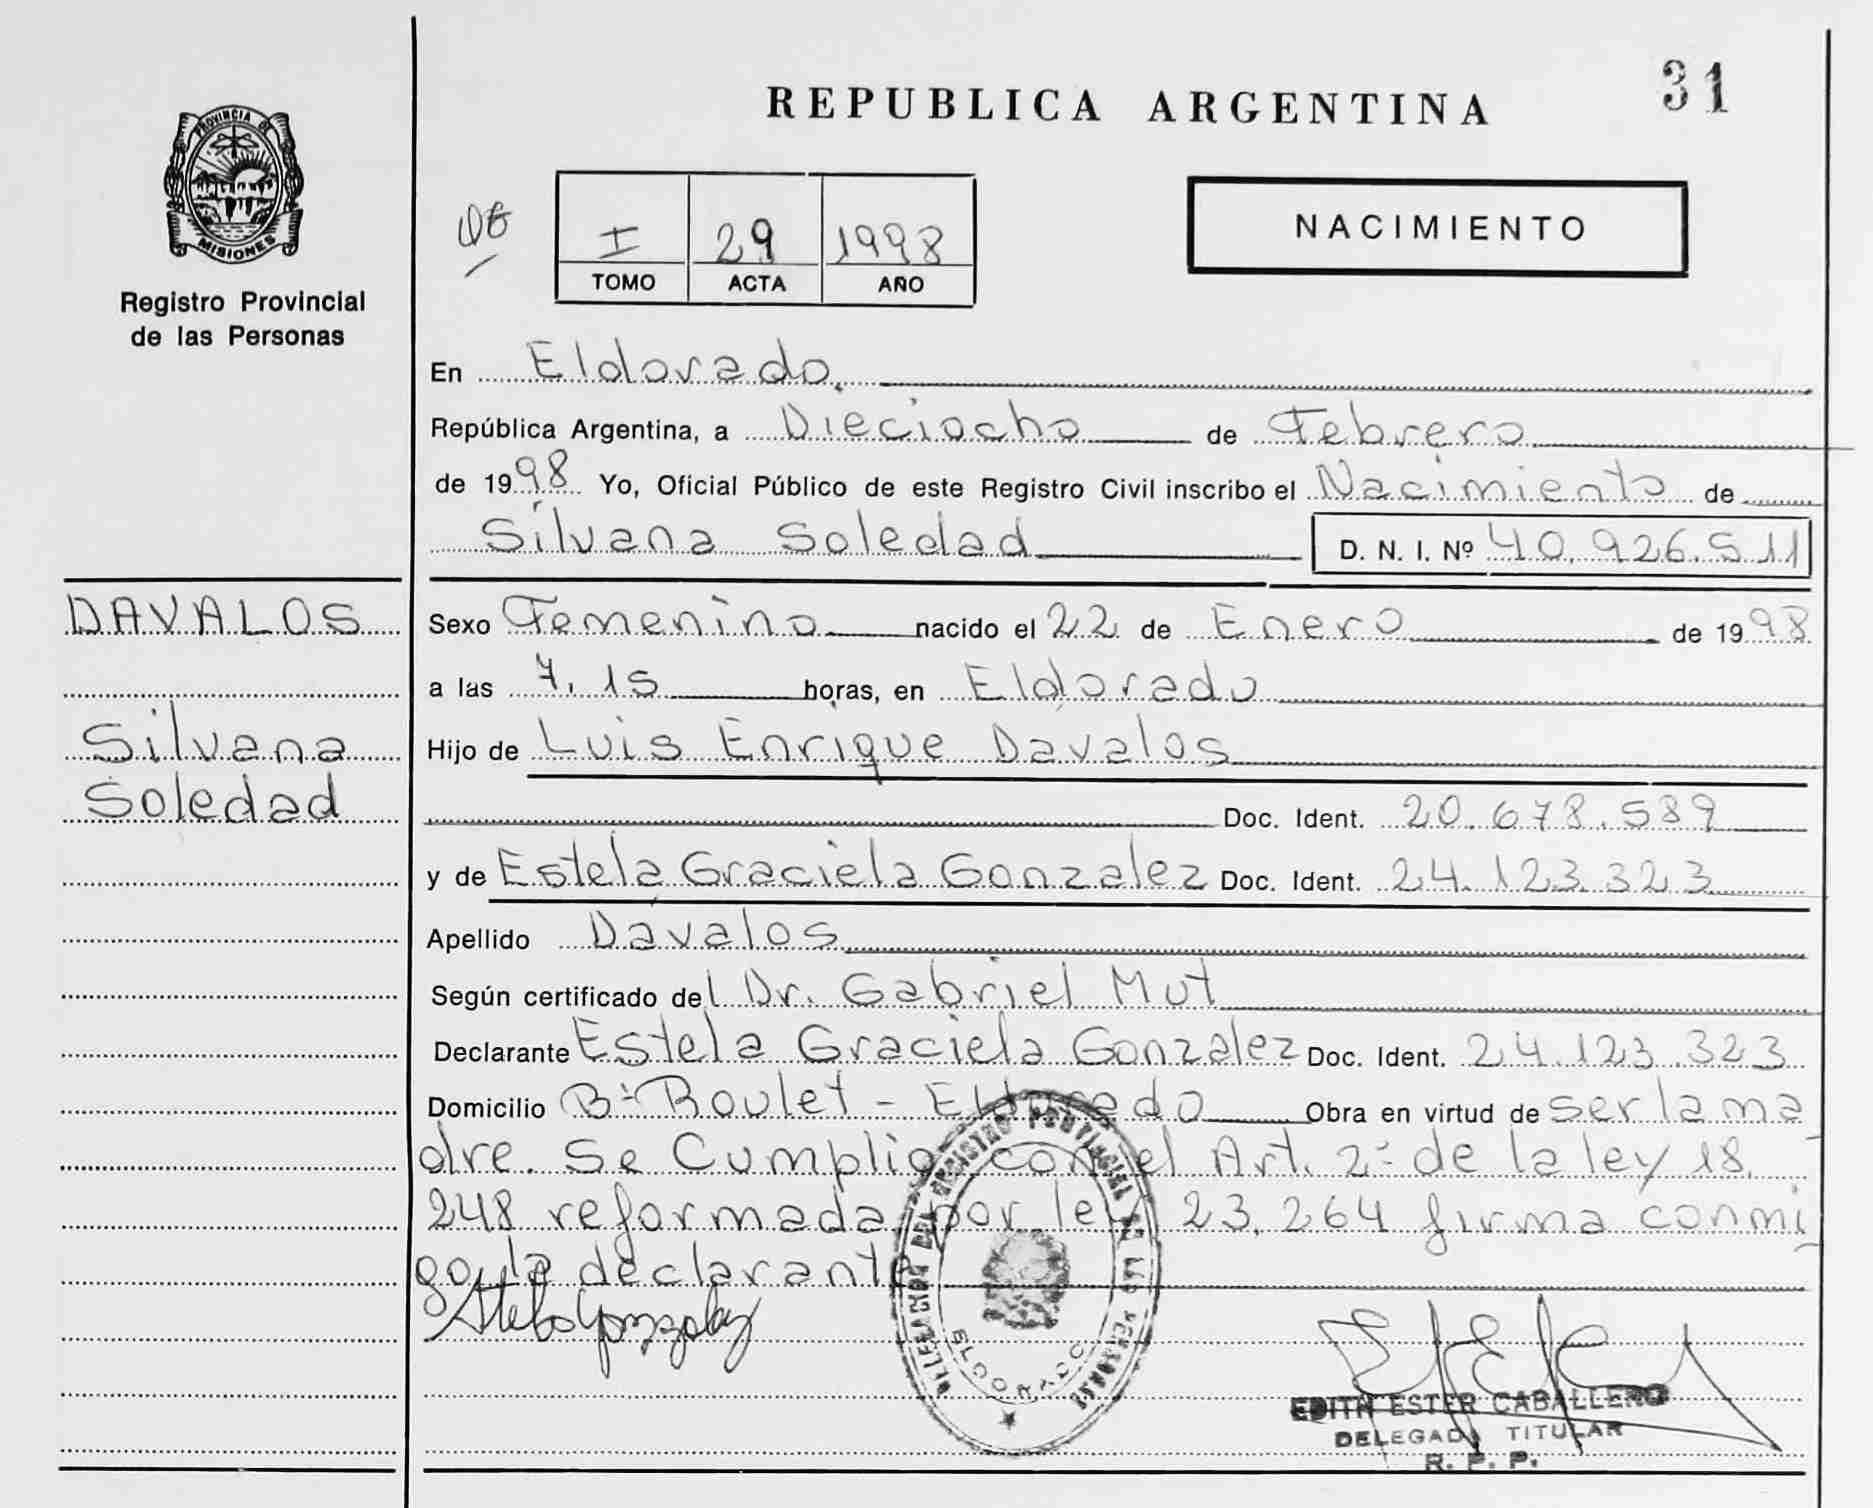 REPUBLICA ARGENTINA
31
PROVINCIA DE
MISIONES
Registro Provincial
de las Personas
I 29 1998
TOMO ACTA AÑO
NACIMIENTO
En Eldorado.
República Argentina, a Dieciocho de Febrero
de 1998 Yo, Oficial Público de este Registro Civil inscribo el Nacimiento de
Silvana Soledad D. N. I. Nº 40.926.511
DAVALOS
Silvana
Soledad
Sexo Femenino nacido el 22 de Enero de 1998
a las 7.15 horas, en Eldorado
Hijo de Luis Enrique Davalos
Doc. Ident. 20.678.589
y de Estela Graciela Gonzalez Doc. Ident. 24.123.323
Apellido Davalos
Según certificado del Dr. Gabriel Mut
Declarante Estela Graciela Gonzalez Doc. Ident. 24.123.323
Domicilio Bº Roulet - Eldorado Obra en virtud de ser la ma
dre. Se Cumplio con el Art. 2º de la ley 18.
248 reformada por ley 23.264 firma conmi
go la declarante
Stela Gonzalez
DELEGACION DEL REGISTRO PROVINCIAL DE LAS PERSONAS
ELDORADO
EDITH ESTER CABALLERO
DELEGADA TITULAR
R. P. P.